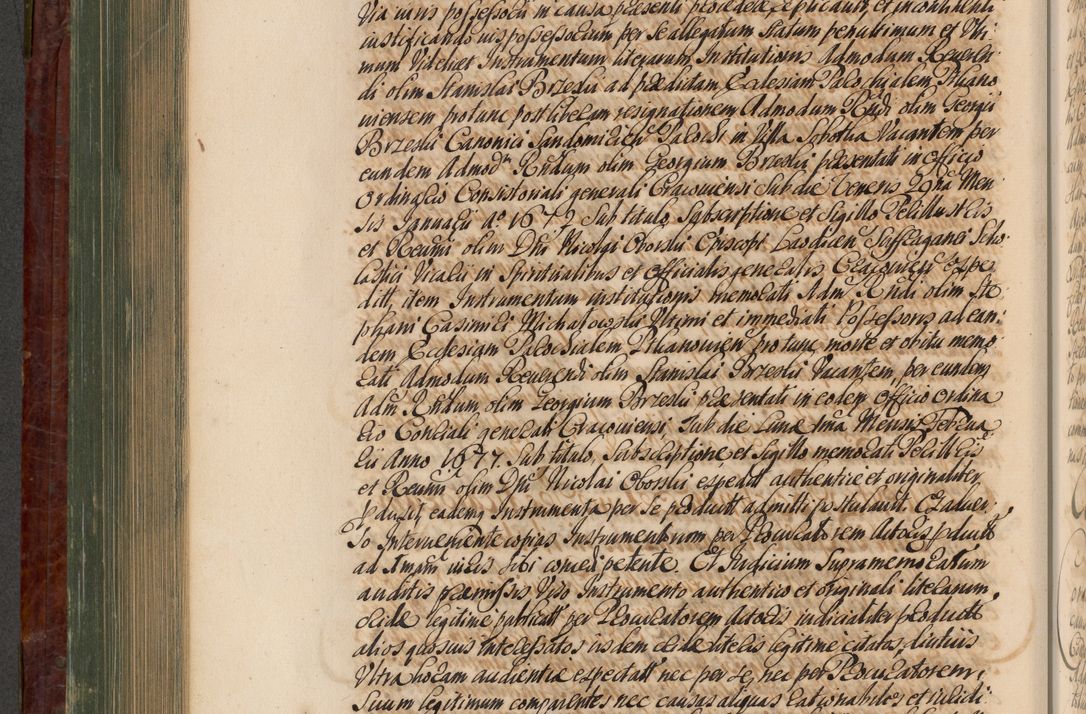 Via iuris possessorii in causa præsenti procedere, explicauit, et in continenti
iustificando ius possessorium per se allegatum statum penultimum et Vlti-
mum Videlicet Instrumentum literarum Institutionis Admodum Reueren-
di olim Stanislai Brzeski ad præditam Ecclesiam Parochialem Priano
uiensem pro tunc post liberam resignationem Admodum Rndi olim Georgii
Brzeski Canonici Sandomirien Paroch in Villa Vacantem per
eundem Admod Rndum olim Georgium Brzeski præsentati in officio
ordinario Consistoriali generali Cracouiensi sub die Veneris Mense
sis Januarii Ao 1672 Sub titulo, Subscriptione et Sigillo Perillustris
et Reumi olim Dni Nicolai Oborski Episcopi Laodicen Suffraganei Scho-
lastici Vicarii in Spiritualibus et Officialis generalis Cracouien expe-
dit, item Instrumentum institutionis memorati Adm Rndi olim Ste
phani Casimiri Michalowski Vltimi et immediati Possessoris ad ean-
dem Ecclesiam Parochialem Prianouien pro tunc morte et obitu memo
rati Admodum Reuerendi olim Stanislai Brzeski Vacantem, per eundem
Adm Rndum olim Georgium Brzeski præsentati in eodem Officio Ordina
rio Consiali generali Cracouiensi Sub die Lunæ 1ma Mensis Februa
rii Anno 1677. Sub titulo, Subscriptione, et Sigillo memorati Perillris
et Reumi olim Dni Nicolai Oborski expedit authentice et originaliter
pdusit, eademq Instrumenta per se producta admitti postulauit. Exaduer-
so Interueniente copias Instrumentorum per Procuratorem Actoris pducta
ad Imam uicis sibi concedi petente. Et Iudicium Supramemoratum
auditis præmissis Viso Instrumento authentico et originali literarum,
Cridæ legitime publicatt per Procuratorem Actoris iudicialiter producta
alios quosuis interessatos iisdem Cridæ literis legitime citatos diutius
Vltra horam audientiæ expectatt nec per se, nec per Procuratorem,
Suum legitimum comparentes nec causas aliquas rationabiles et iuridi-